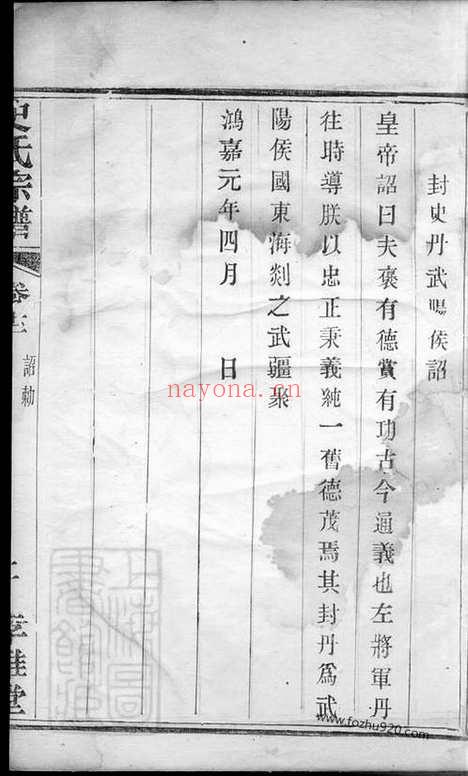 封史丹武陽侯詔
皇帝詔曰夫褒有德賞有功古今通義也左將軍丹
往時導朕以忠正秉義純一舊德茂焉其封丹爲武
陽侯國東海郯之武疆聚
鴻嘉元年四月 日
史氏宗譜
詔勅
nayona.cn
www.fozhu920.com